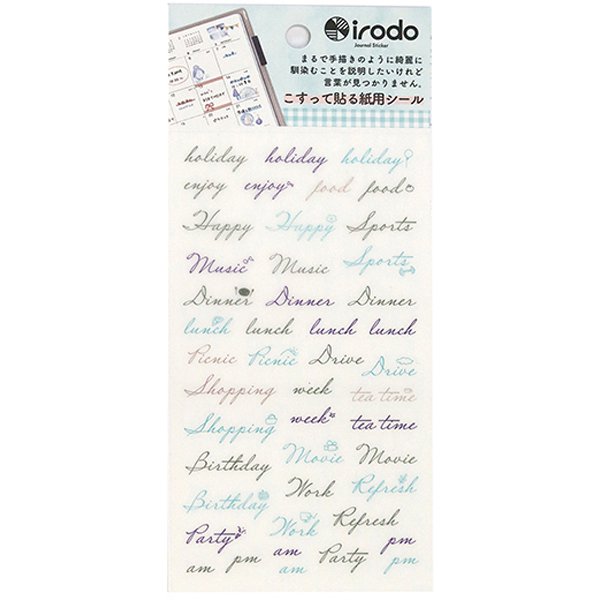 irodo
Journal Sticker
まるで手描きのように綺麗に
馴染むことを説明したいけれど
言葉が見つかりません。
こすって貼る紙用シール
holiday holiday holiday
enjoy enjoy food food
Happy Happy Sports
Music Music Sports
Dinner Dinner Dinner
lunch lunch lunch lunch
Picnic Picnic Drive Drive
Shopping week tea time
Shopping week tea time
Birthday Movie Movie
Birthday Work Refresh
Party Work Refresh
am pm am pm Party am pm